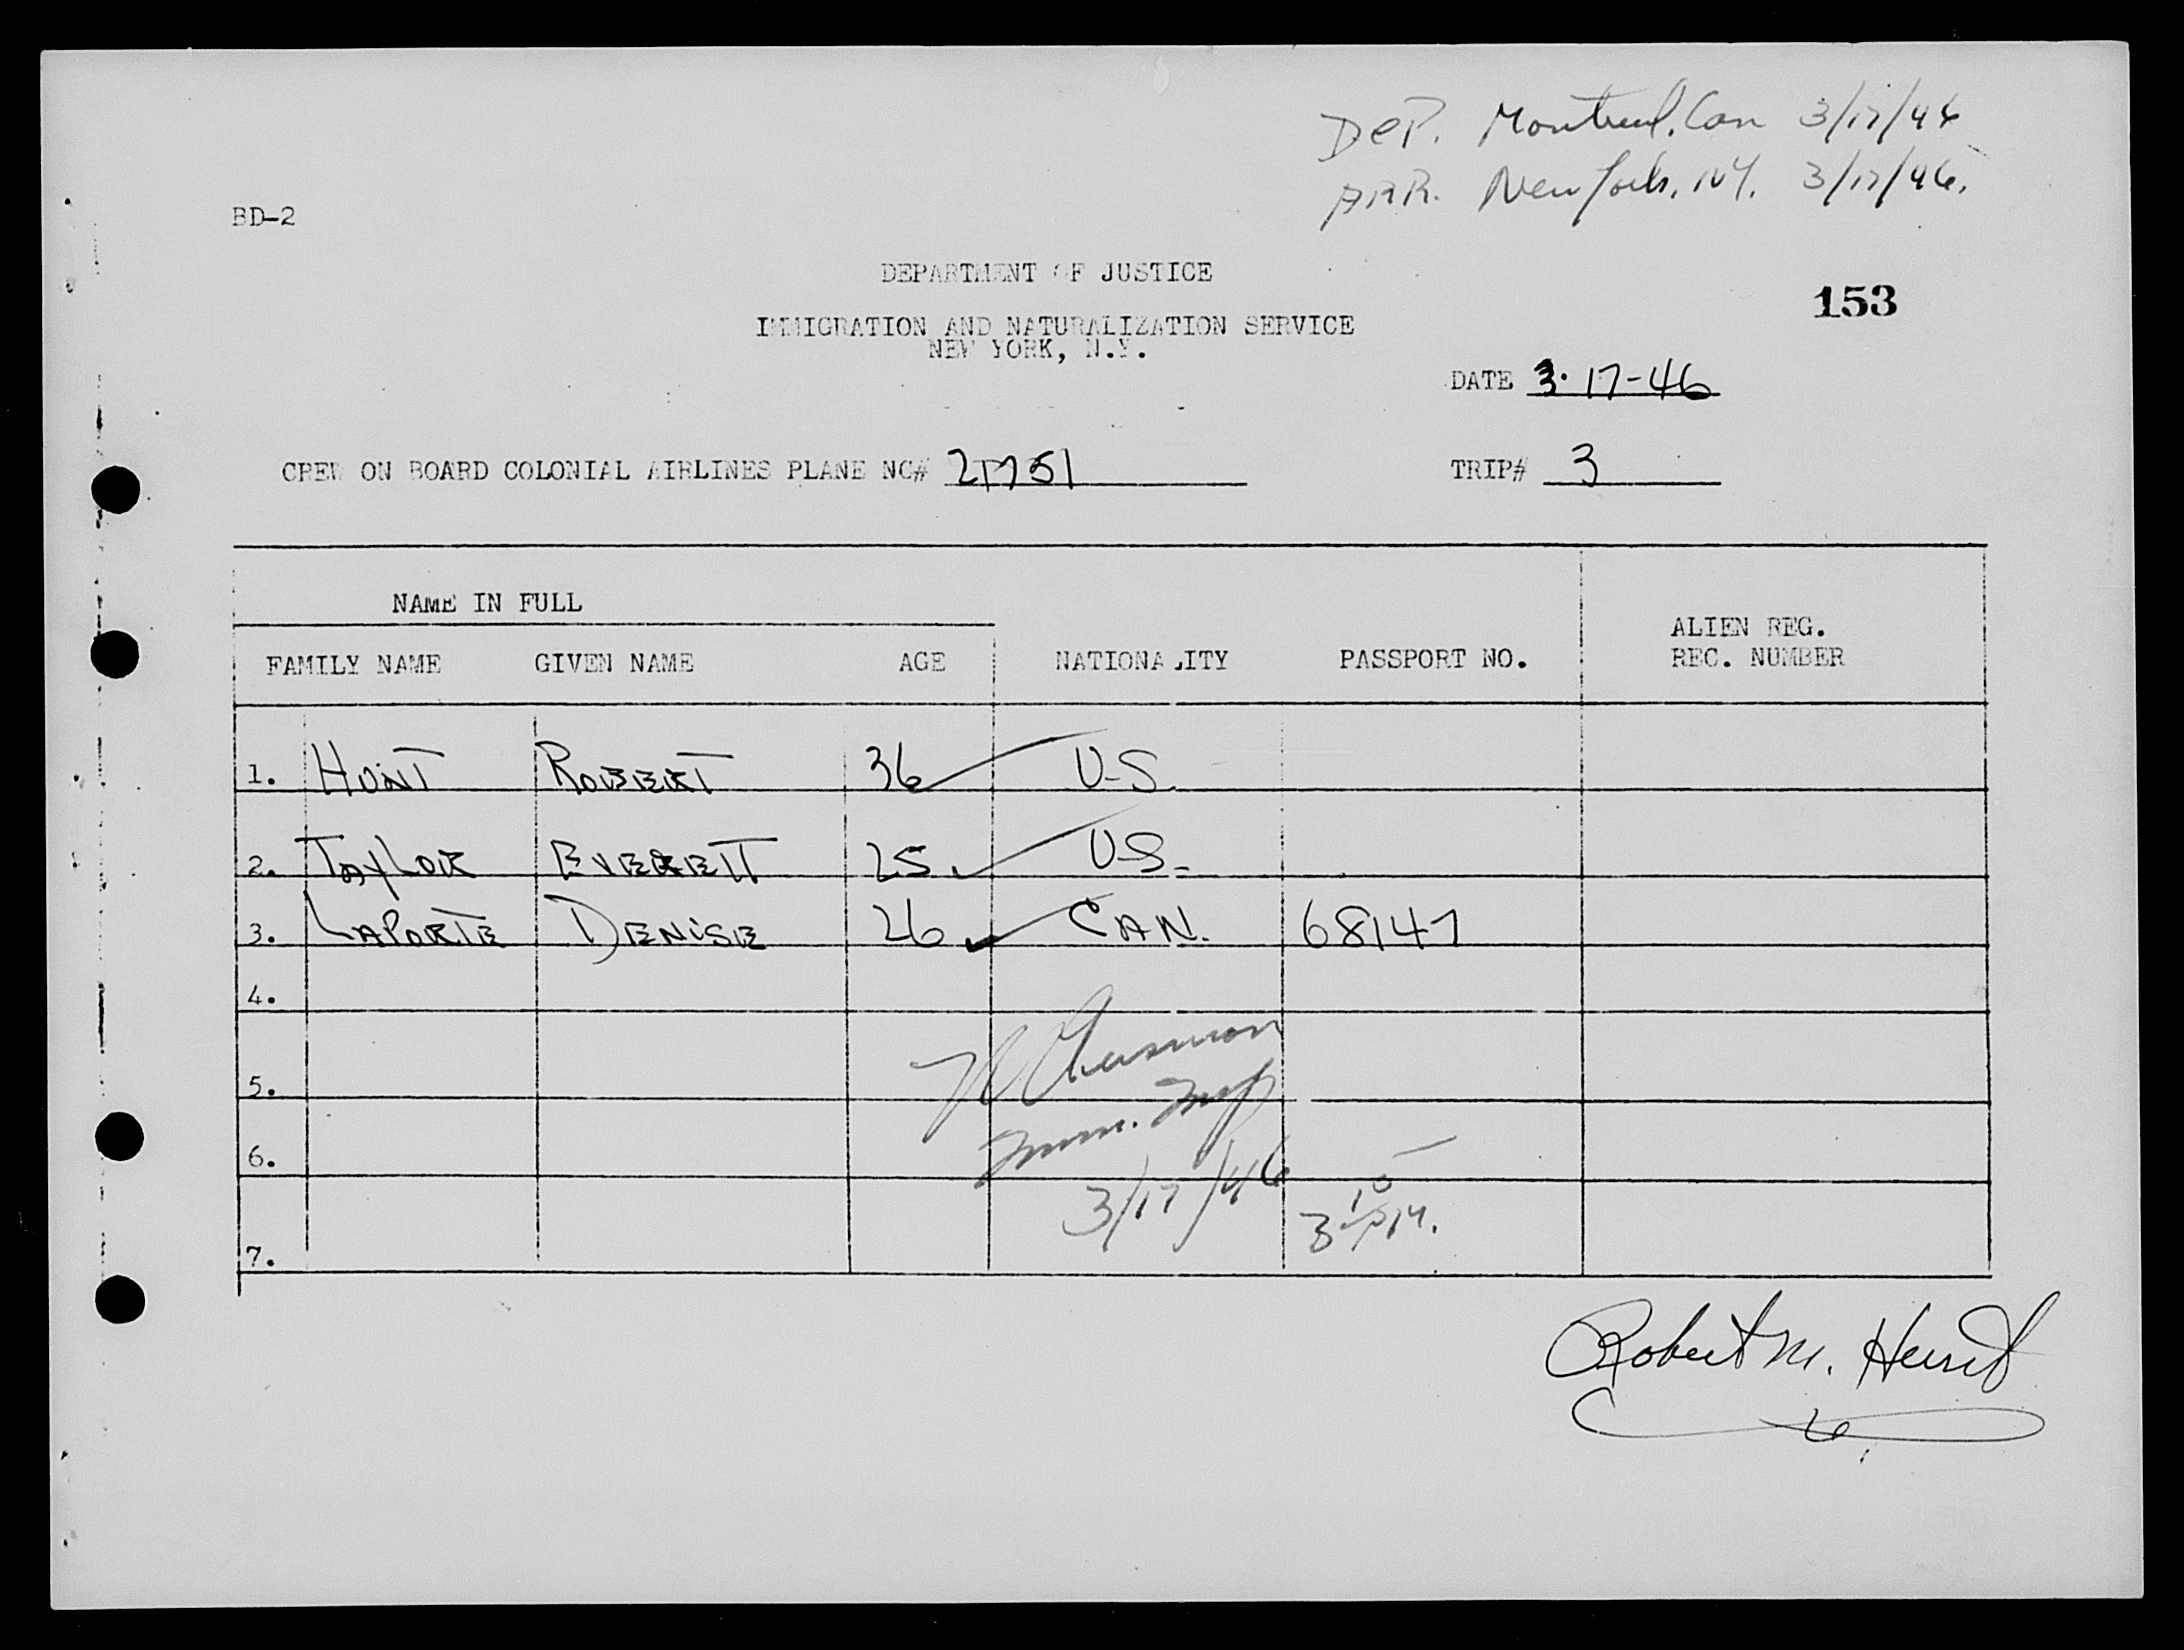 DEP. Montreal, Can 3/17/46
ARR. New York, NY. 3/17/46.
BD-2
DEPARTMENT OF JUSTICE
153
IMMIGRATION AND NATURALIZATION SERVICE
NEW YORK, N.Y.
DATE 3-17-46
CREW ON BOARD COLONIAL AIRLINES PLANE NC# 21751
TRIP# 3
NAME IN FULL
FAMILY NAME GIVEN NAME AGE NATIONALITY PASSPORT NO. ALIEN REG. REC. NUMBER
1. HUNT ROBERT 36 U-S
2. TAYLOR EVERETT 25 U-S-
3. LAPORTE DENISE 26 CAN. 68147
4.
5.
Imm. Insp
6.
3/17/46 3 10 P.M.
7.
Robert M. Hunt